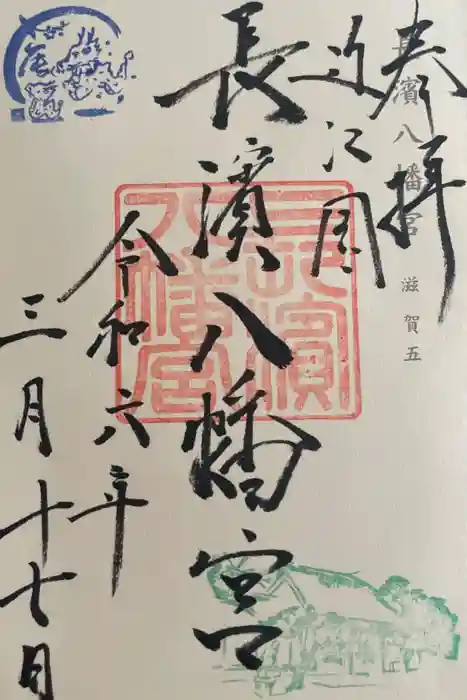 奉拝
長濱八幡宮 滋賀五
近江国
長濱八幡宮
令和六年
三月十七日
長濱八幡宮